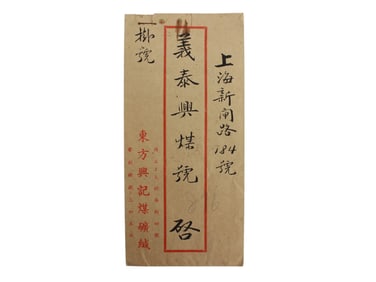 上海新閘路184號
義泰興煤號 啓
掛號
東方興記煤礦緘